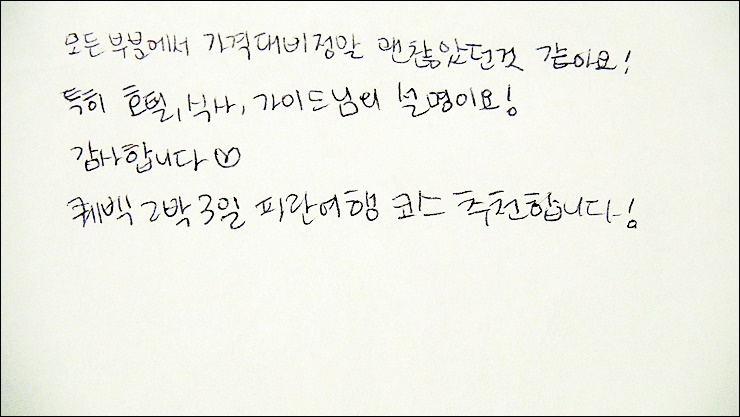 모든 부분에서 가격대비정말 괜찮았던것 같아요!
특히 호텔, 식사, 가이드님의 설명이요!
감사합니다♡
퀘벡 2박 3일 파란여행 코스 추천합니다!